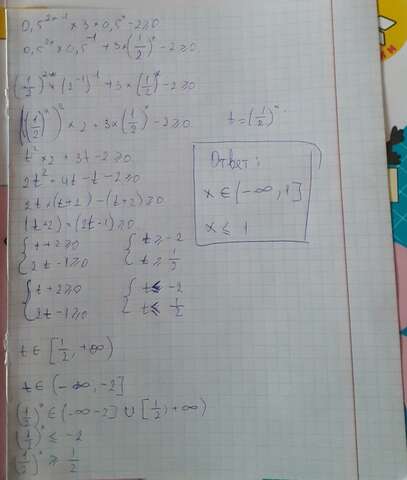 0,5^{2x-1} × 3 × 0,5^x - 2 ≥ 0
0,5^{2x} × 0,5^{-1} + 3 × (1/2)^x - 2 ≥ 0
(1/2)^{2x} × (2^{-1})^{-1} + 3 × (1/2)^x - 2 ≥ 0
((1/2)^x)^2 × 2 + 3 × (1/2)^x - 2 ≥ 0
t = (1/2)^x
t^2 × 2 + 3t - 2 ≥ 0
2t^2 + 4t - t - 2 ≥ 0
2t × (t + 2) - (t + 2) ≥ 0
(t + 2) × (2t - 1) ≥ 0
{ t + 2 ≥ 0 { t ≥ -2
{ 2t - 1 ≥ 0 { t ≥ 1/2
{ t + 2 ≥ 0 { t ≤ -2
{ 2t - 1 ≥ 0 { t ≤ 1/2
t ∈ [1/2, +∞)
t ∈ (-∞, -2]
(1/2)^x ∈ (-∞ -2] ∪ [1/2, +∞)
(1/2)^x ≤ -2
(1/2)^x ≥ 1/2
Ответ:
x ∈ (-∞, 1]
x ≤ 1